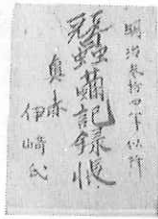 明治参拾四年以降
蠶繭記録帳
奥赤
伊﨑氏